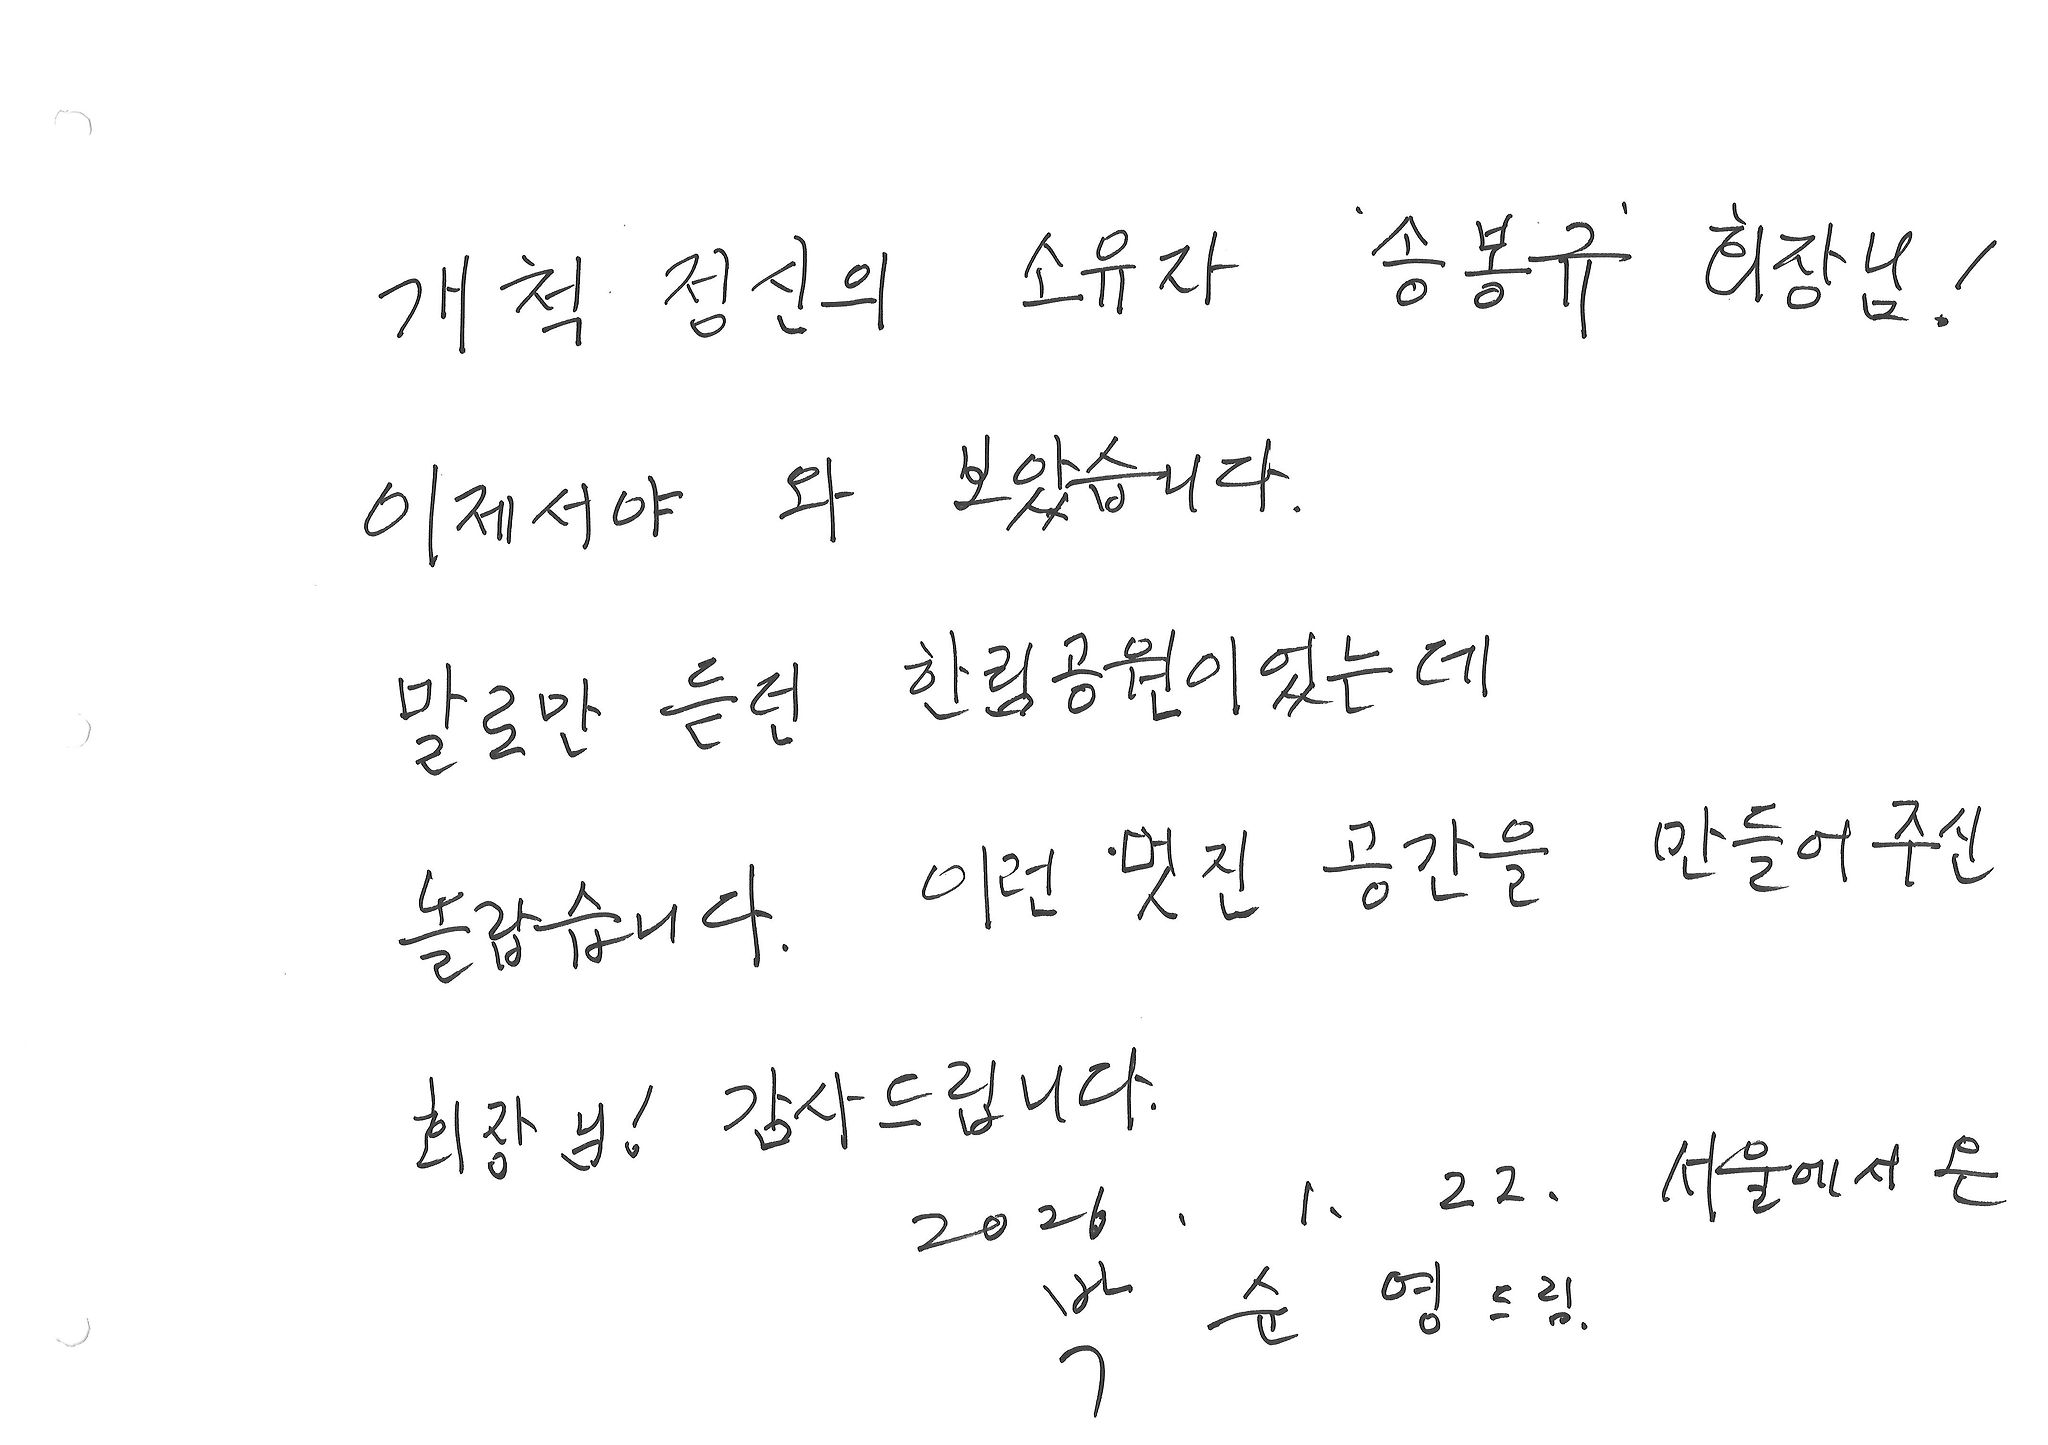 개척 정신의 소유자 '송봉규' 회장님!
이제서야 와 보았습니다.
말로만 듣던 한림공원이었는데
놀랍습니다. 이런 멋진 공간을 만들어 주신
회장님! 감사드립니다.
2026. 1. 22. 서울에서 온
박 순 영 드림.